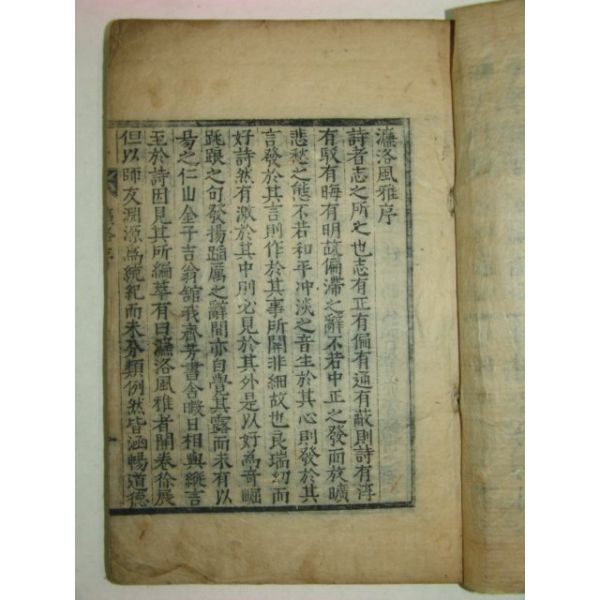 濂洛風雅序
詩者志之所之也志有正有偏有通有蔽則詩有淳
有駁有晦有明故偏滯之辭不若中正之發而放曠
悲愁之態不若和平冲淡之音生於其心則發於其
言發於其言則作於其事所關非細故也良瑞幼而
好詩然有激於其中則必見於其外是以好為奇崛
跌踼之句發揚蹈厲之辭間亦自覺其露而未有以
易之仁山金子吉翁舘我齊芳書舍暇日相與縱言
至於詩因見其所編萃有曰濂洛風雅者開卷徐展
但以師友淵源爲統紀而未分類例然皆涵暢道德